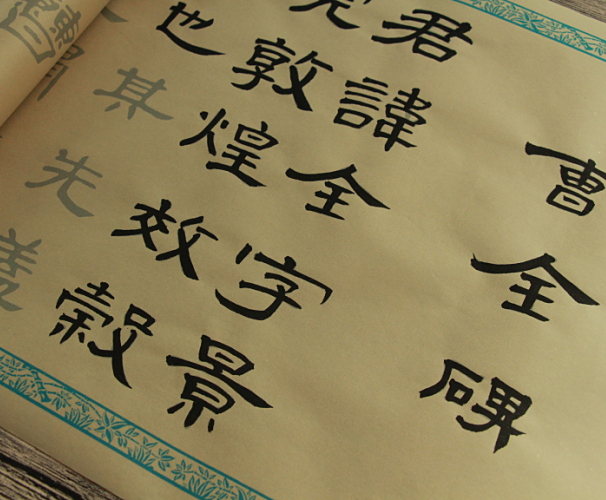 曹全碑
君諱全字景
完敦煌效穀
也其先蓋